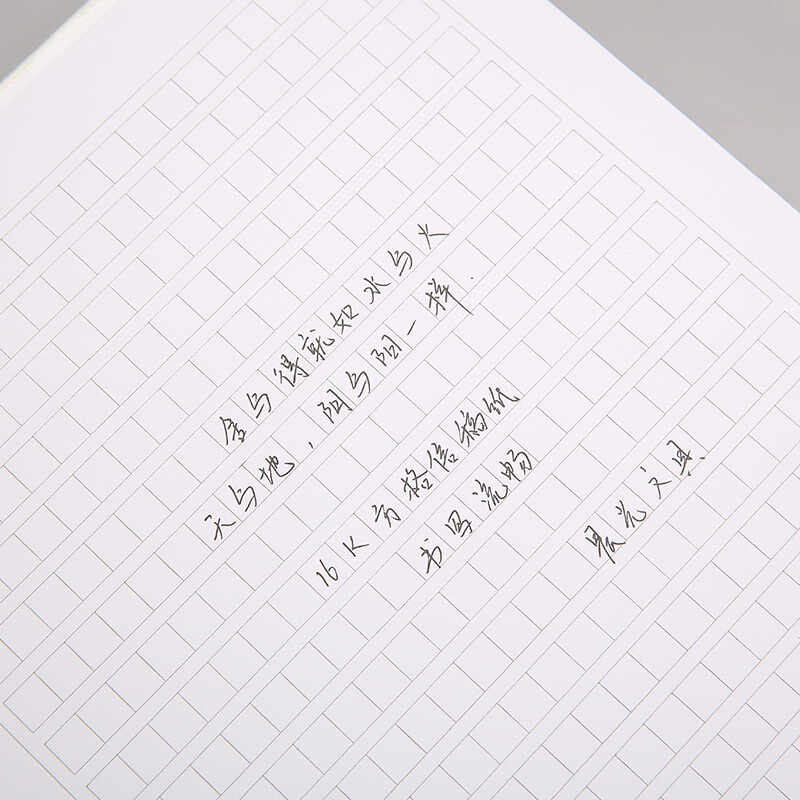 舍与得就如水与火
天与地，阴与阳一样.
16K方格信稿纸
书写流畅
晨光文具